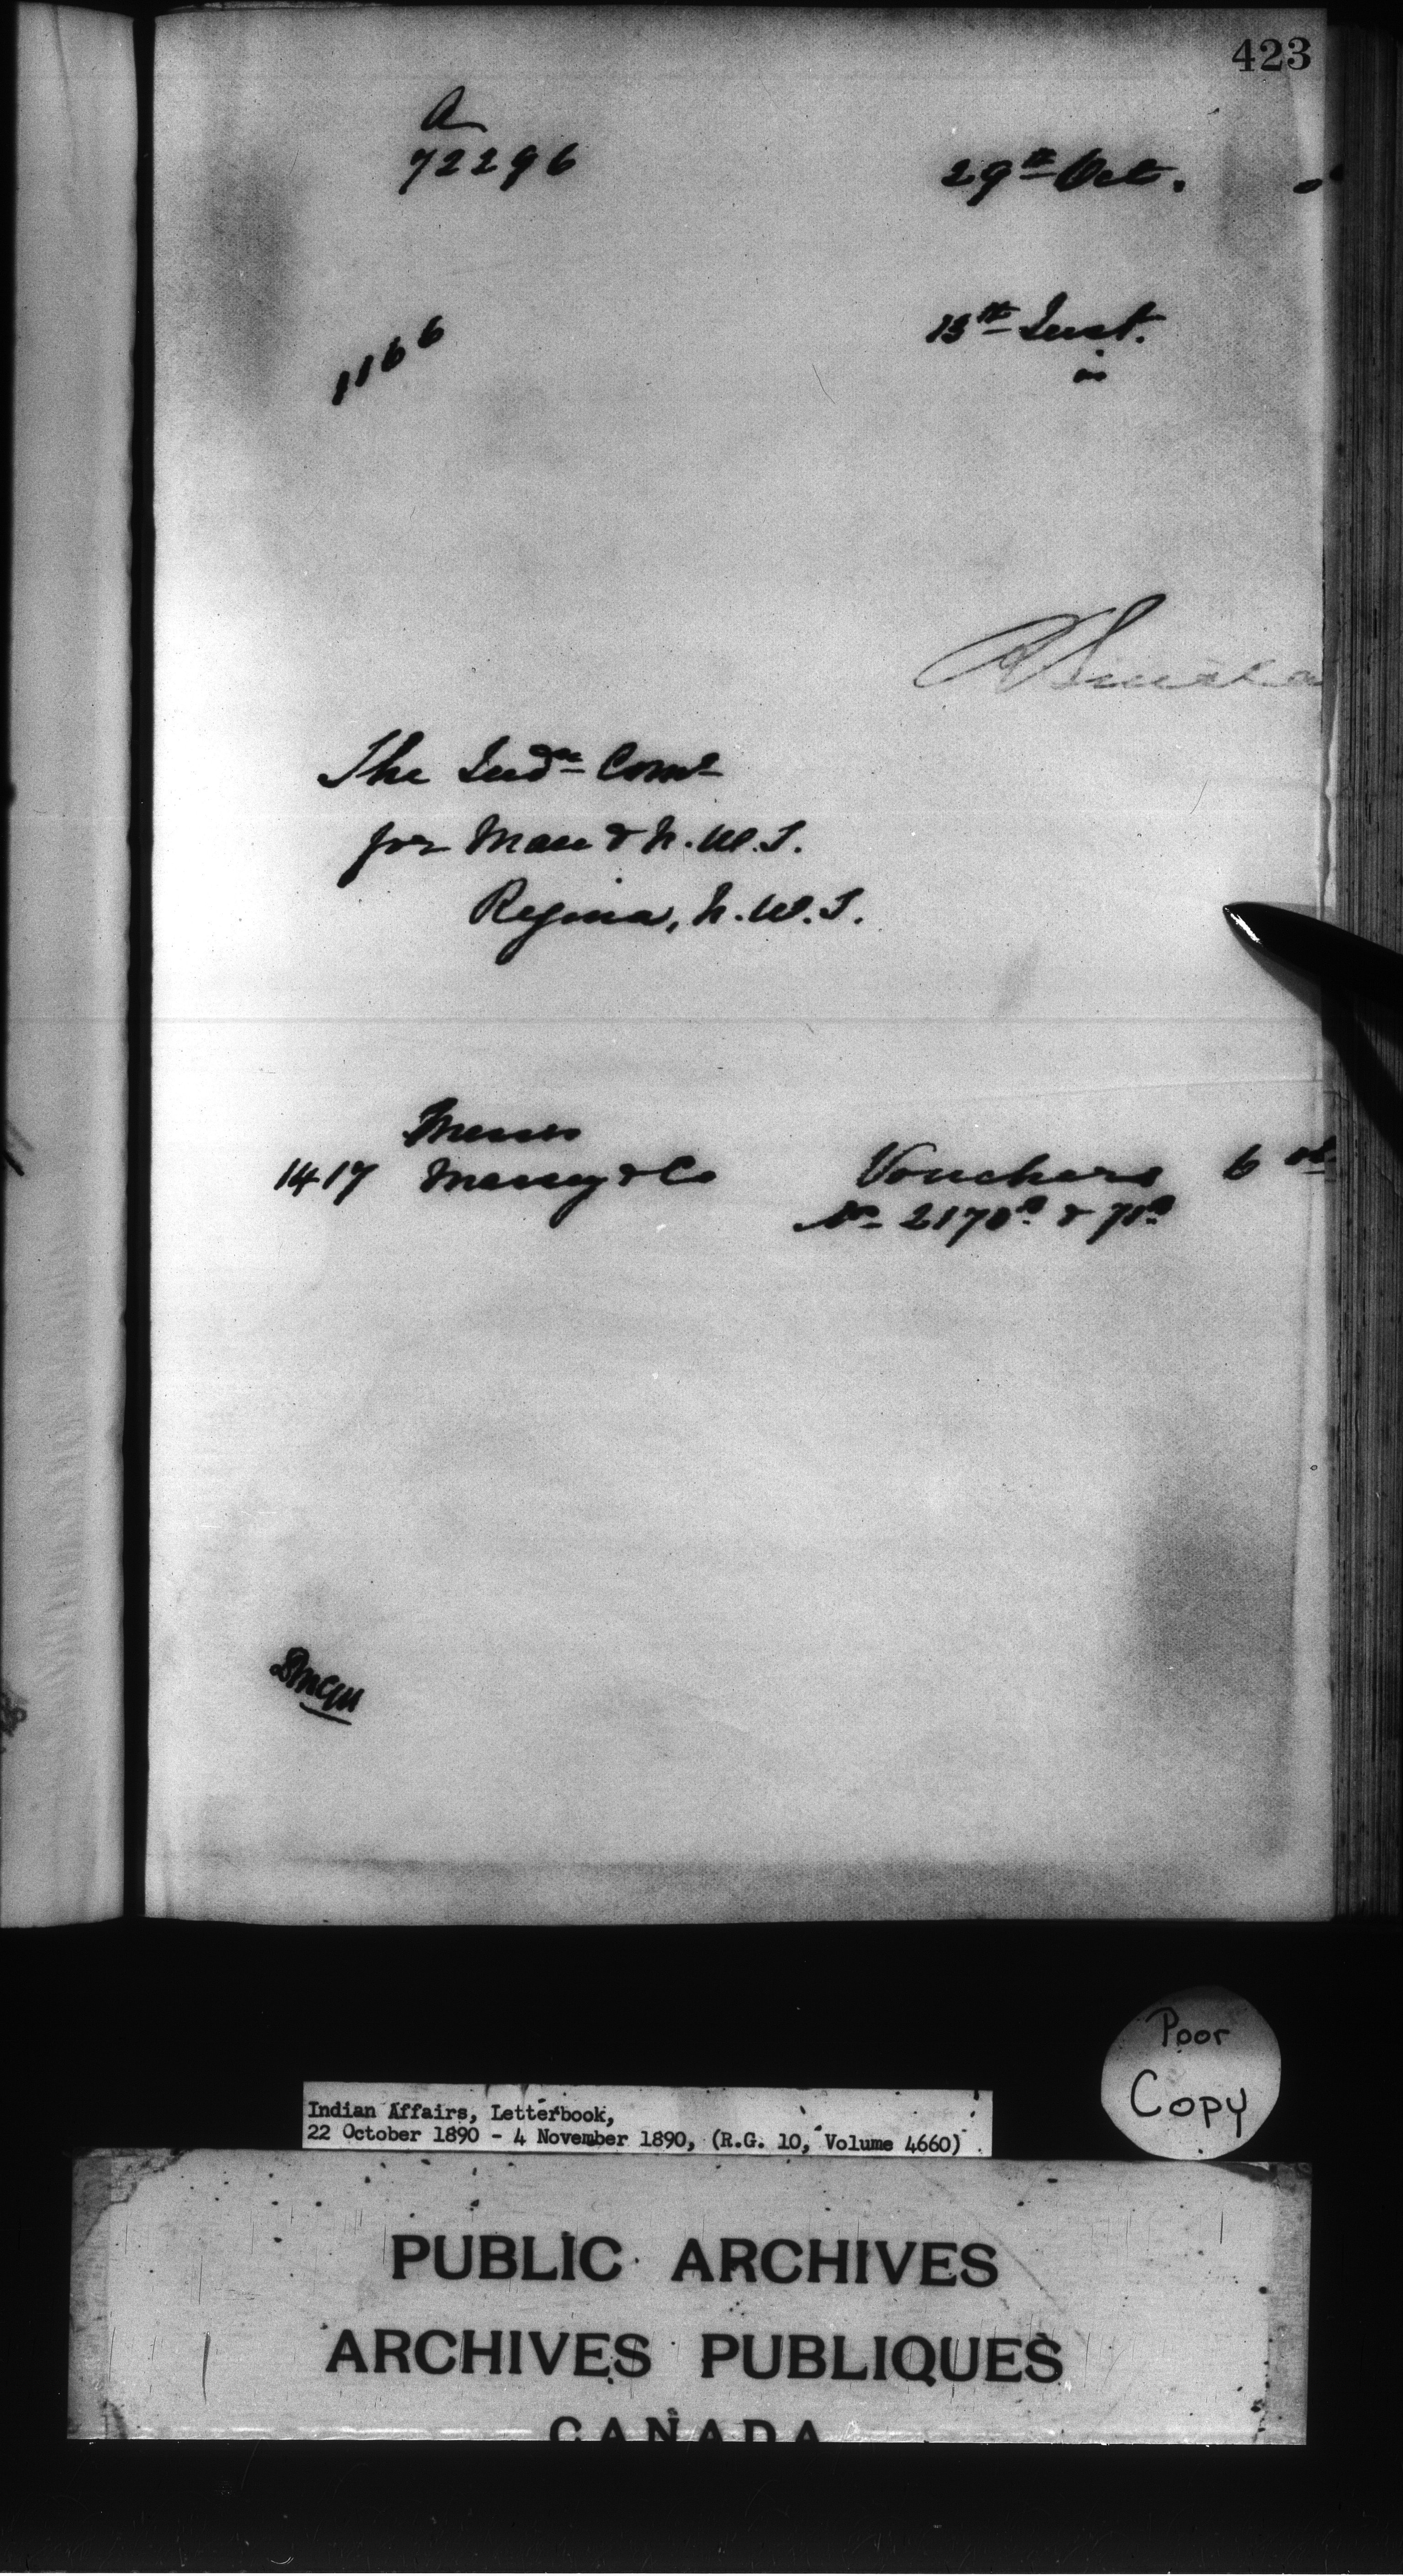 423
A
72296 29th Oct.
1166 13th Inst.
The Indn Comr
for Man & N.W.T.
Regina, N.W.T.
Messrs
1417 Massey & Co Vouchers 6
No 2170
Indian Affairs, Letterbook,
22 October 1890 - 4 November 1890, (R.G. 10, Volume 4660)
Poor
Copy
PUBLIC ARCHIVES
ARCHIVES PUBLIQUES
CANADA